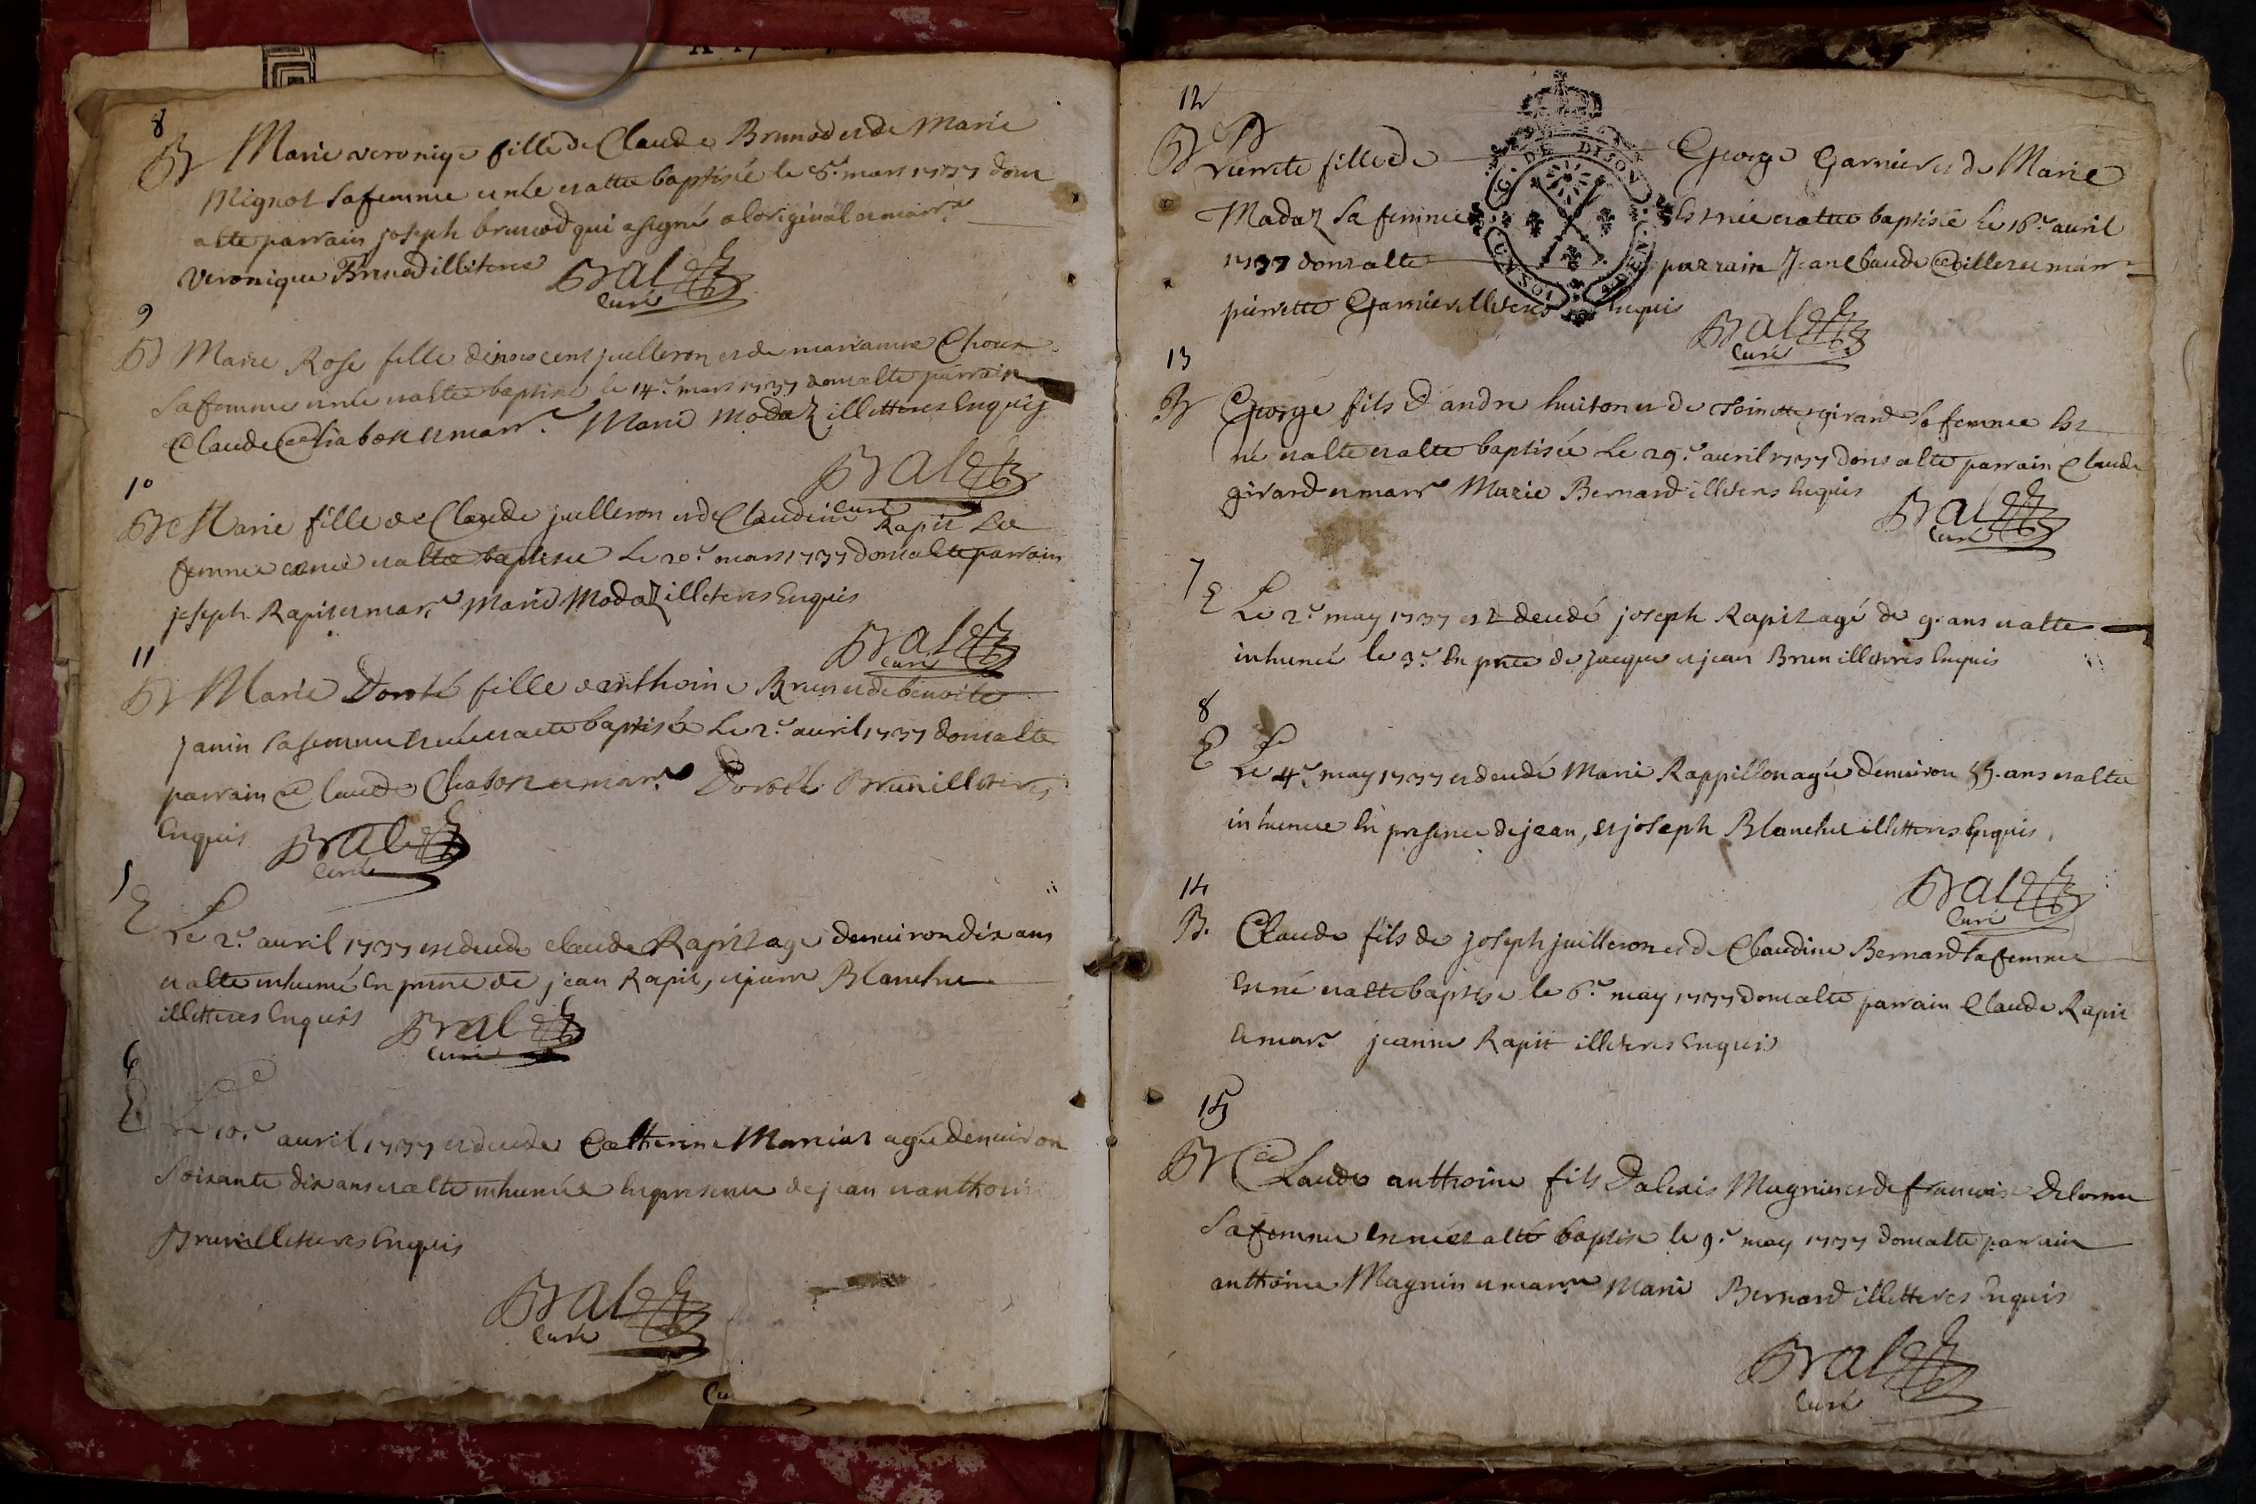 8
B Marie veronique fille de Claude Brunod et de Marie
Mignot sa femme est née et a été baptisée le 6.e mars 1737 dont
a été parrain joseph brunod qui a signé a l'original et marr.e
Veronique Brunod illiteree
Bralez
Curé
9
B Marie Rose fille d'innocent juilleron et de marianne Choux
sa femme est née et a été baptisée le 14.e mars 1737 dont a été parrain
Claude Chabon et marr.e Marie Modaz illitteres Enquis
Bralez
Curé
10
B Marie fille de Claude juilleron et de Claudine Rapit sa
femme est née et a été baptisée Le 20.e mars 1737 dont a été parrain
joseph Rapit et mar.e Marie Modaz illiteres Enquis
Bralez
Curé
11
B Marie Doroté fille d'anthoine Brun et de benoite
janin sa femme est née et a été baptisée Le 2.e auril 1737 dont a été
parrain Claude Chabon et mar.e Doroté Brun illiteres
Enquis
Bralez
Curé
5
E Le 2.e auril 1737 est decedé claude Rapit agé d'enuiron dix ans
et a été inhumé En pnce de jean Rapit, et pierre Blanchet
illitteres Enquis
Bralez
Curé
6
E Le 10.e auril 1737 est decedée Catherine Marciat agée d'enuiron
Soixante dix ans et a été inhumée En presence de jean et anthoine
Brun illitteres Enquis
Bralez
Curé
Cu
12
B Pierrete fille de George Garnier et de Marie
Madaz sa femme Est née et a été baptisée Le 16.e auril
1737 dont a été parrain Jean Claude et marr.e
pierrette Garnier illiteres Enquis
G. DE DIJON
Bralez
Curé
13
B George fils d'andre huiton et de Toinette girard sa femme Est
né et a été et a été baptisée Le 29.e auril 1737 dont a été parrain Claude
girard et marr.e Marie Bernard illiteres Enquis
Bralez
Curé
7
E Le 2.e may 1737 est decedé joseph Rapit agé de 9. ans et a été
inhumé le 3.e En pnce de jacque et jean Brun illiteres Enquis
8
E Le 4.e may 1737 est decedé Marie Rappillon agée d'enuiron 55. ans et a été
inhumée En presence de jean, et joseph Blanchet illitteres Enquis,
Bralez
Curé
14
B. Claude fils de joseph juilleron et de Claudine Bernard sa femme
Est né et a été baptisé le 6.e may 1737 dont a été parrain Claude Rapit
et mar.e jeanne Rapit illiteres Enquis
15
B Claude anthoine fils D'alexis Magnin et de francoise Delorme
sa femme Est né et a été baptisé le 9.e may 1737 dont a été parrain
anthoine Magnin et marr.e Marie Bernard illitteres Enquis
Bralez
Curé